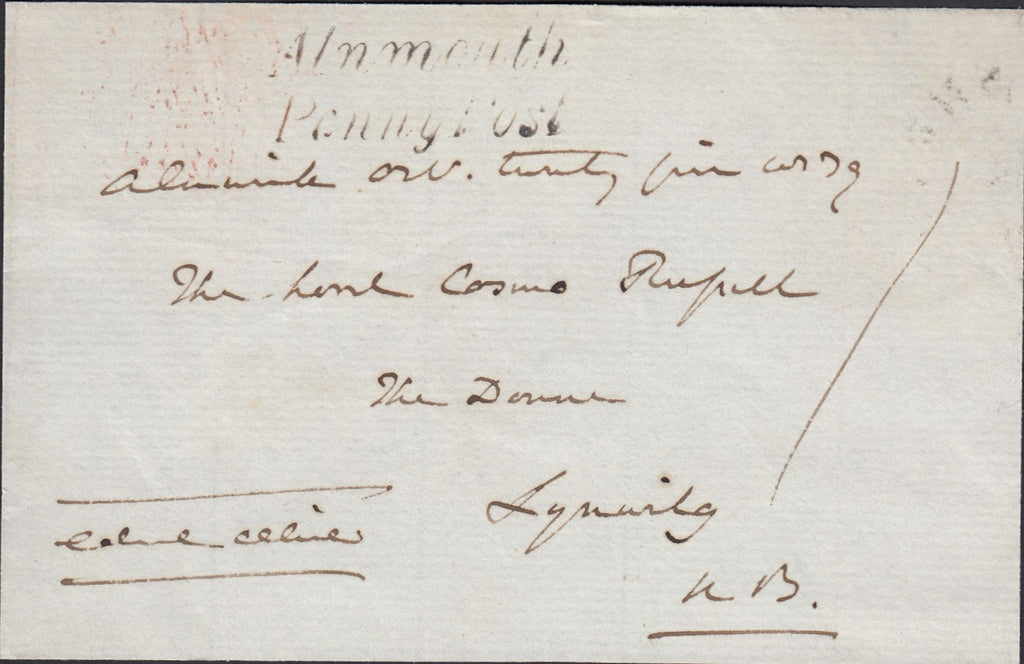 Alnmouth
Penny Post
Alnwick Oct. twenty five 1839
The Lord Cosmo Russell
The Doune
Lynwilg
N B.